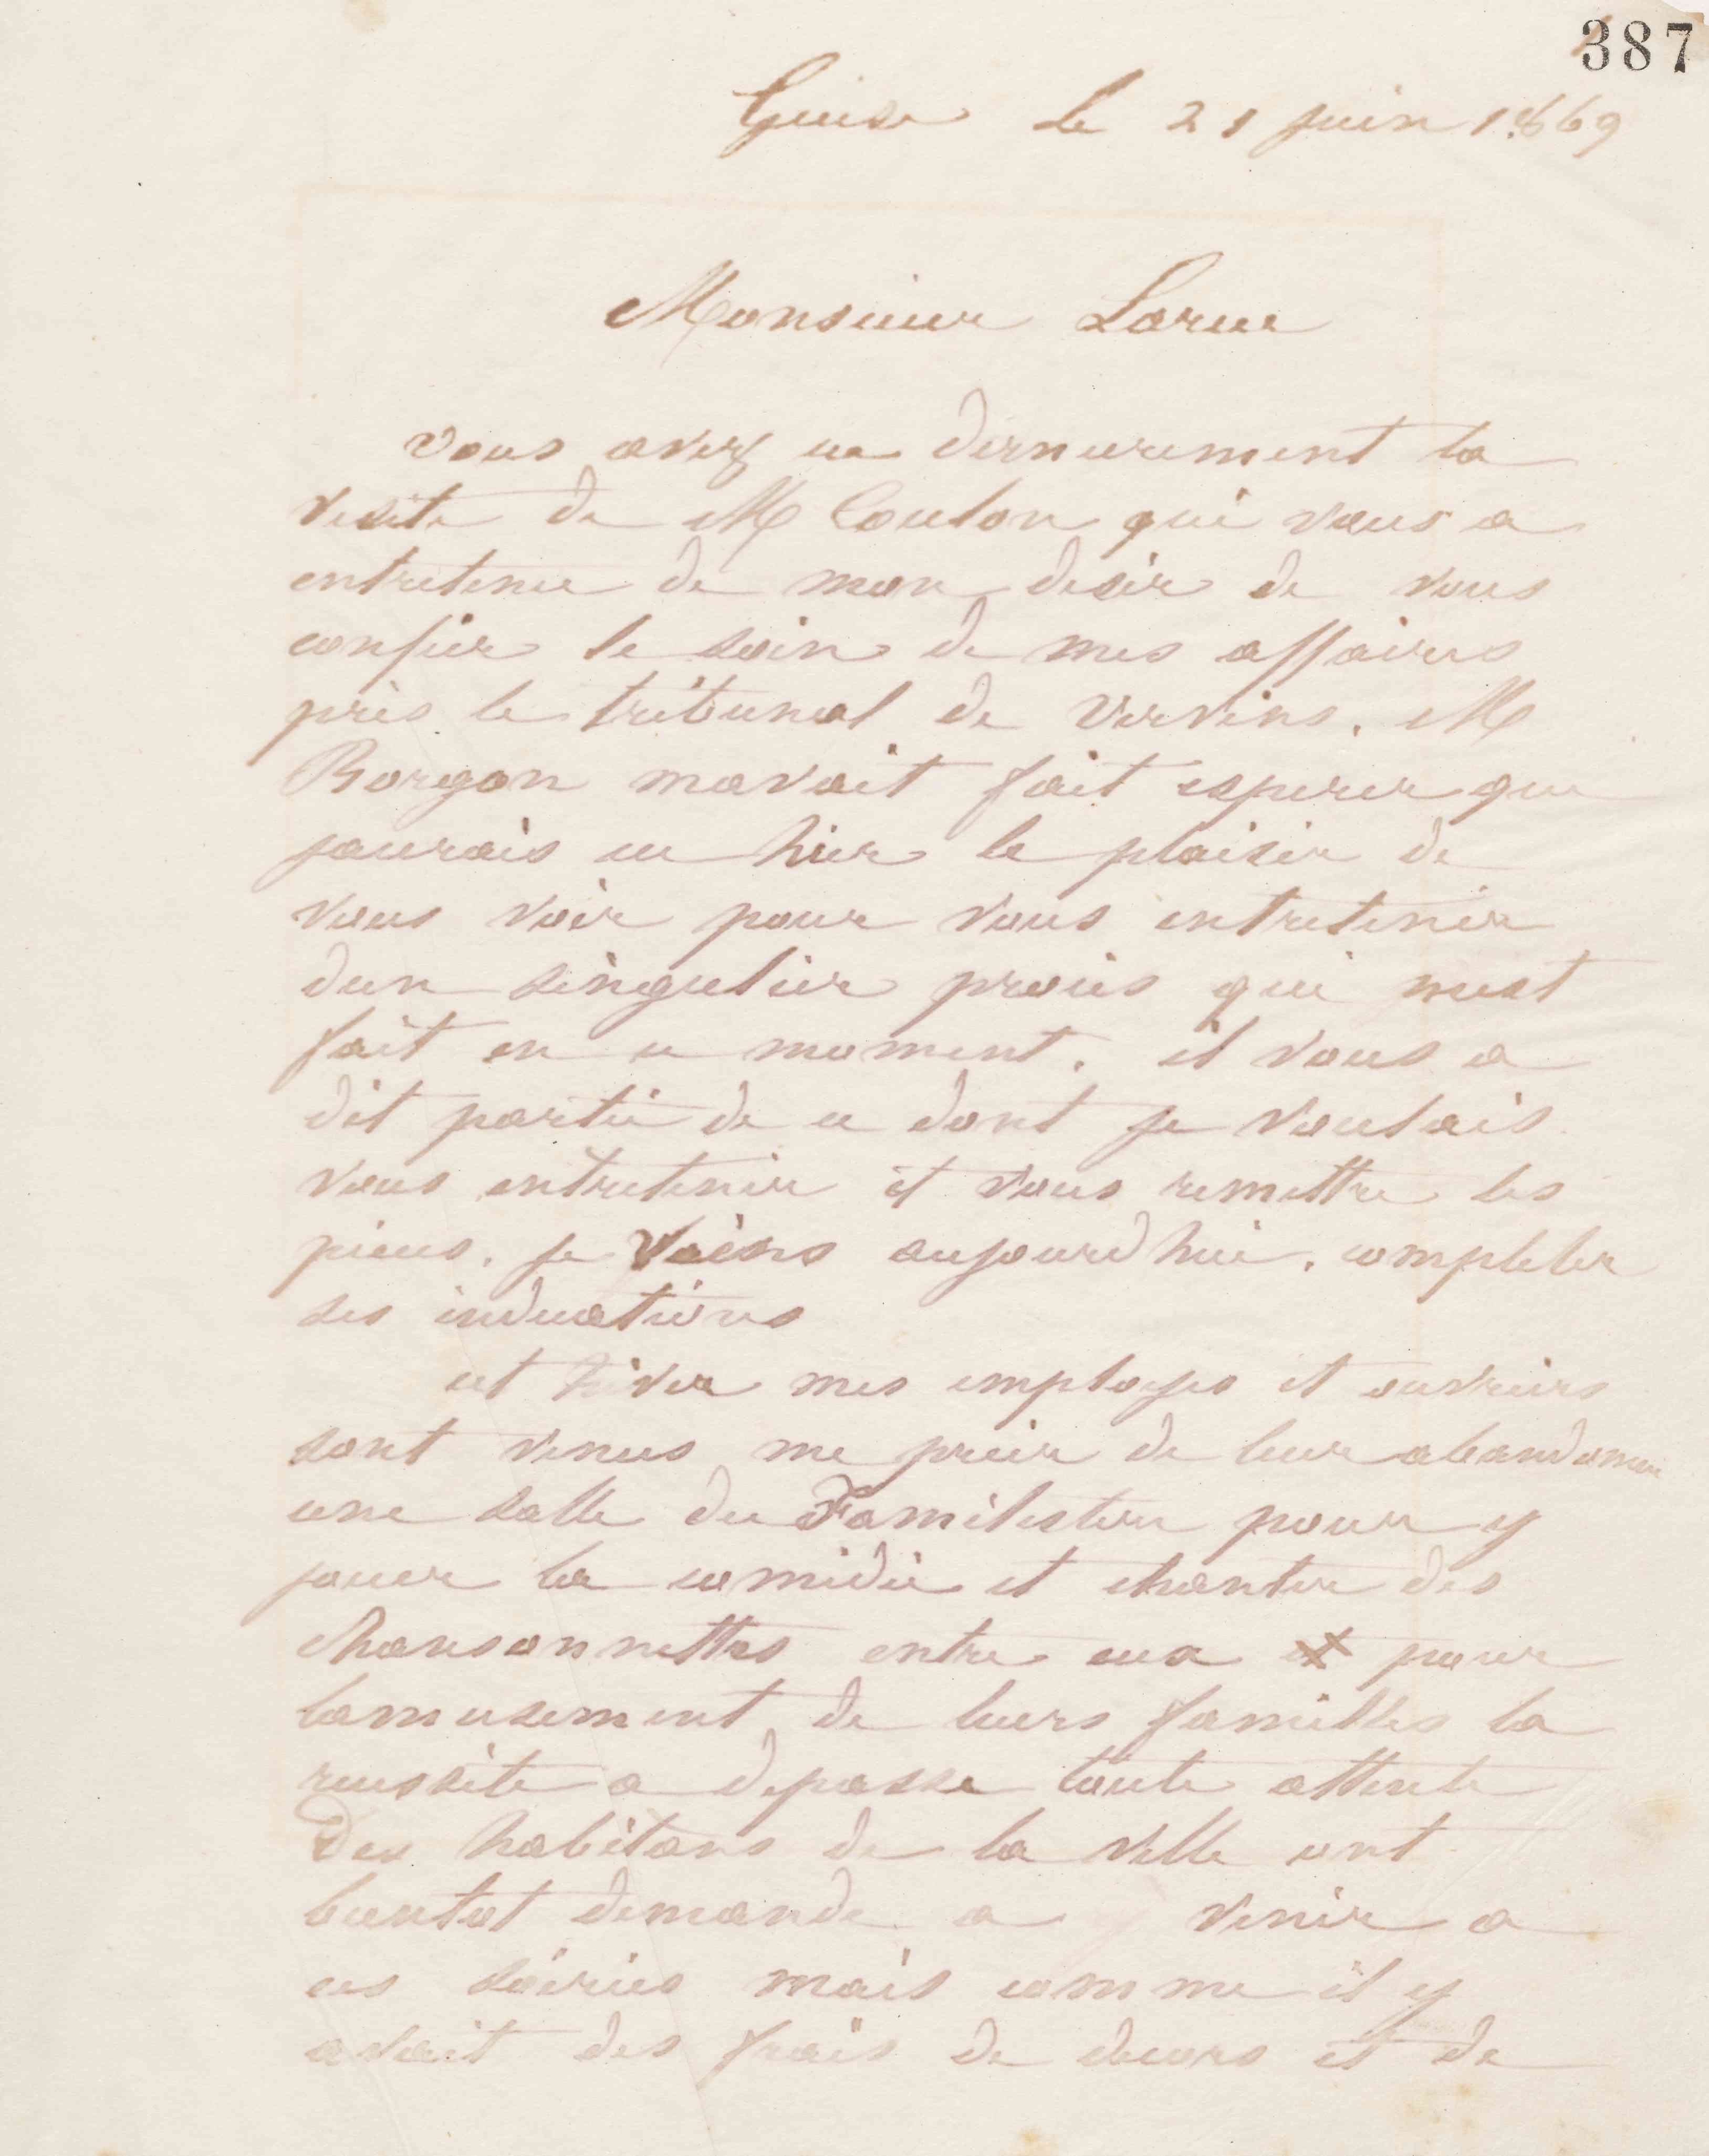 387
Guise le 21 juin 1869
Monsieur Larue
vous avez eu dernierement la
visite de M Coulon qui vous a
entretenu de mon desir de vous
confier le soin de mes affaires
près le tribunal de Vervins. M
Borgon mavait fait esperer que
jaurais eu hier le plaisir de
vous voir pour vous entretenir
dun singulier procès qui mest
fait en ce moment. il vous a
dit partie de ce dont je voulais
vous entretenir et vous remettre les
pieces. je viens aujourdhui. completer
ses indications
cet hiver mes employes et ouvriers
sont venus me prier de leur abandonner
une salle du Familistere pour y
jouer la comedie et chanter des
chansonnettes entre eux et pour
lamusement de leurs familles la
reussite a depasse toute attente
Des habitans de la ville ont
bientot demande a venir a
ces soirées mais comme il y
avait des frais de decors et de